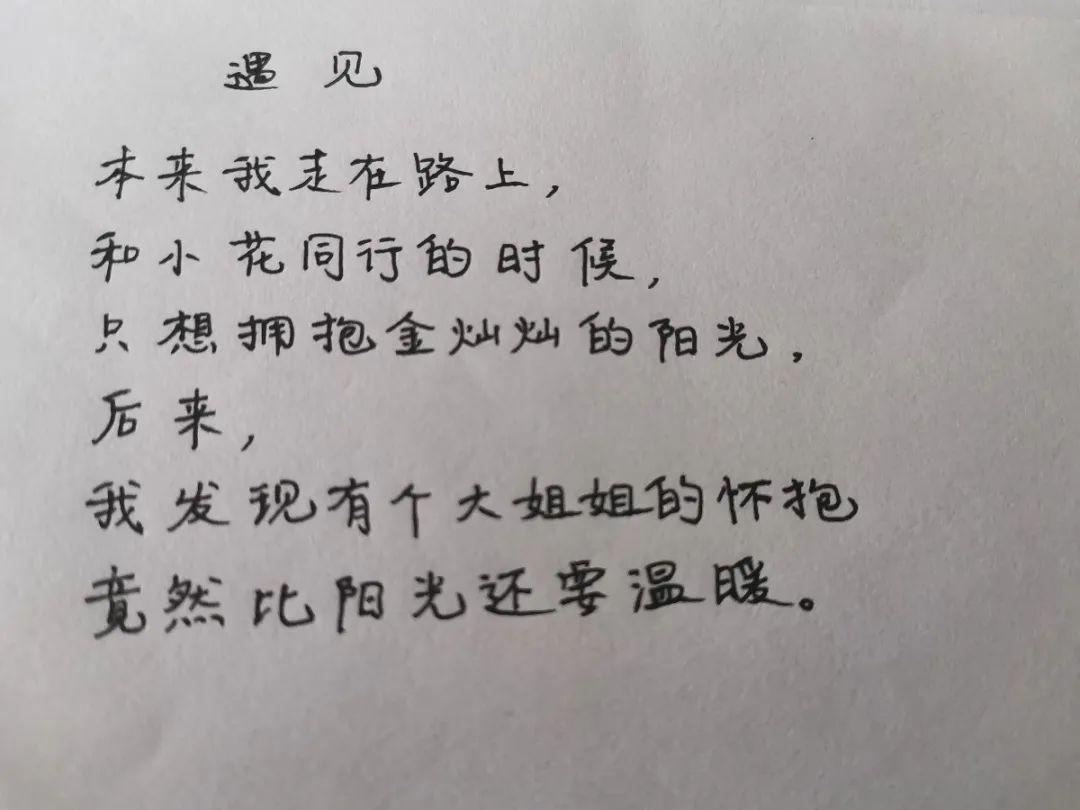 遇见
本来我走在路上，
和小花同行的时候，
只想拥抱金灿灿的阳光，
后来，
我发现有个大姐姐的怀抱
竟然比阳光还要温暖。